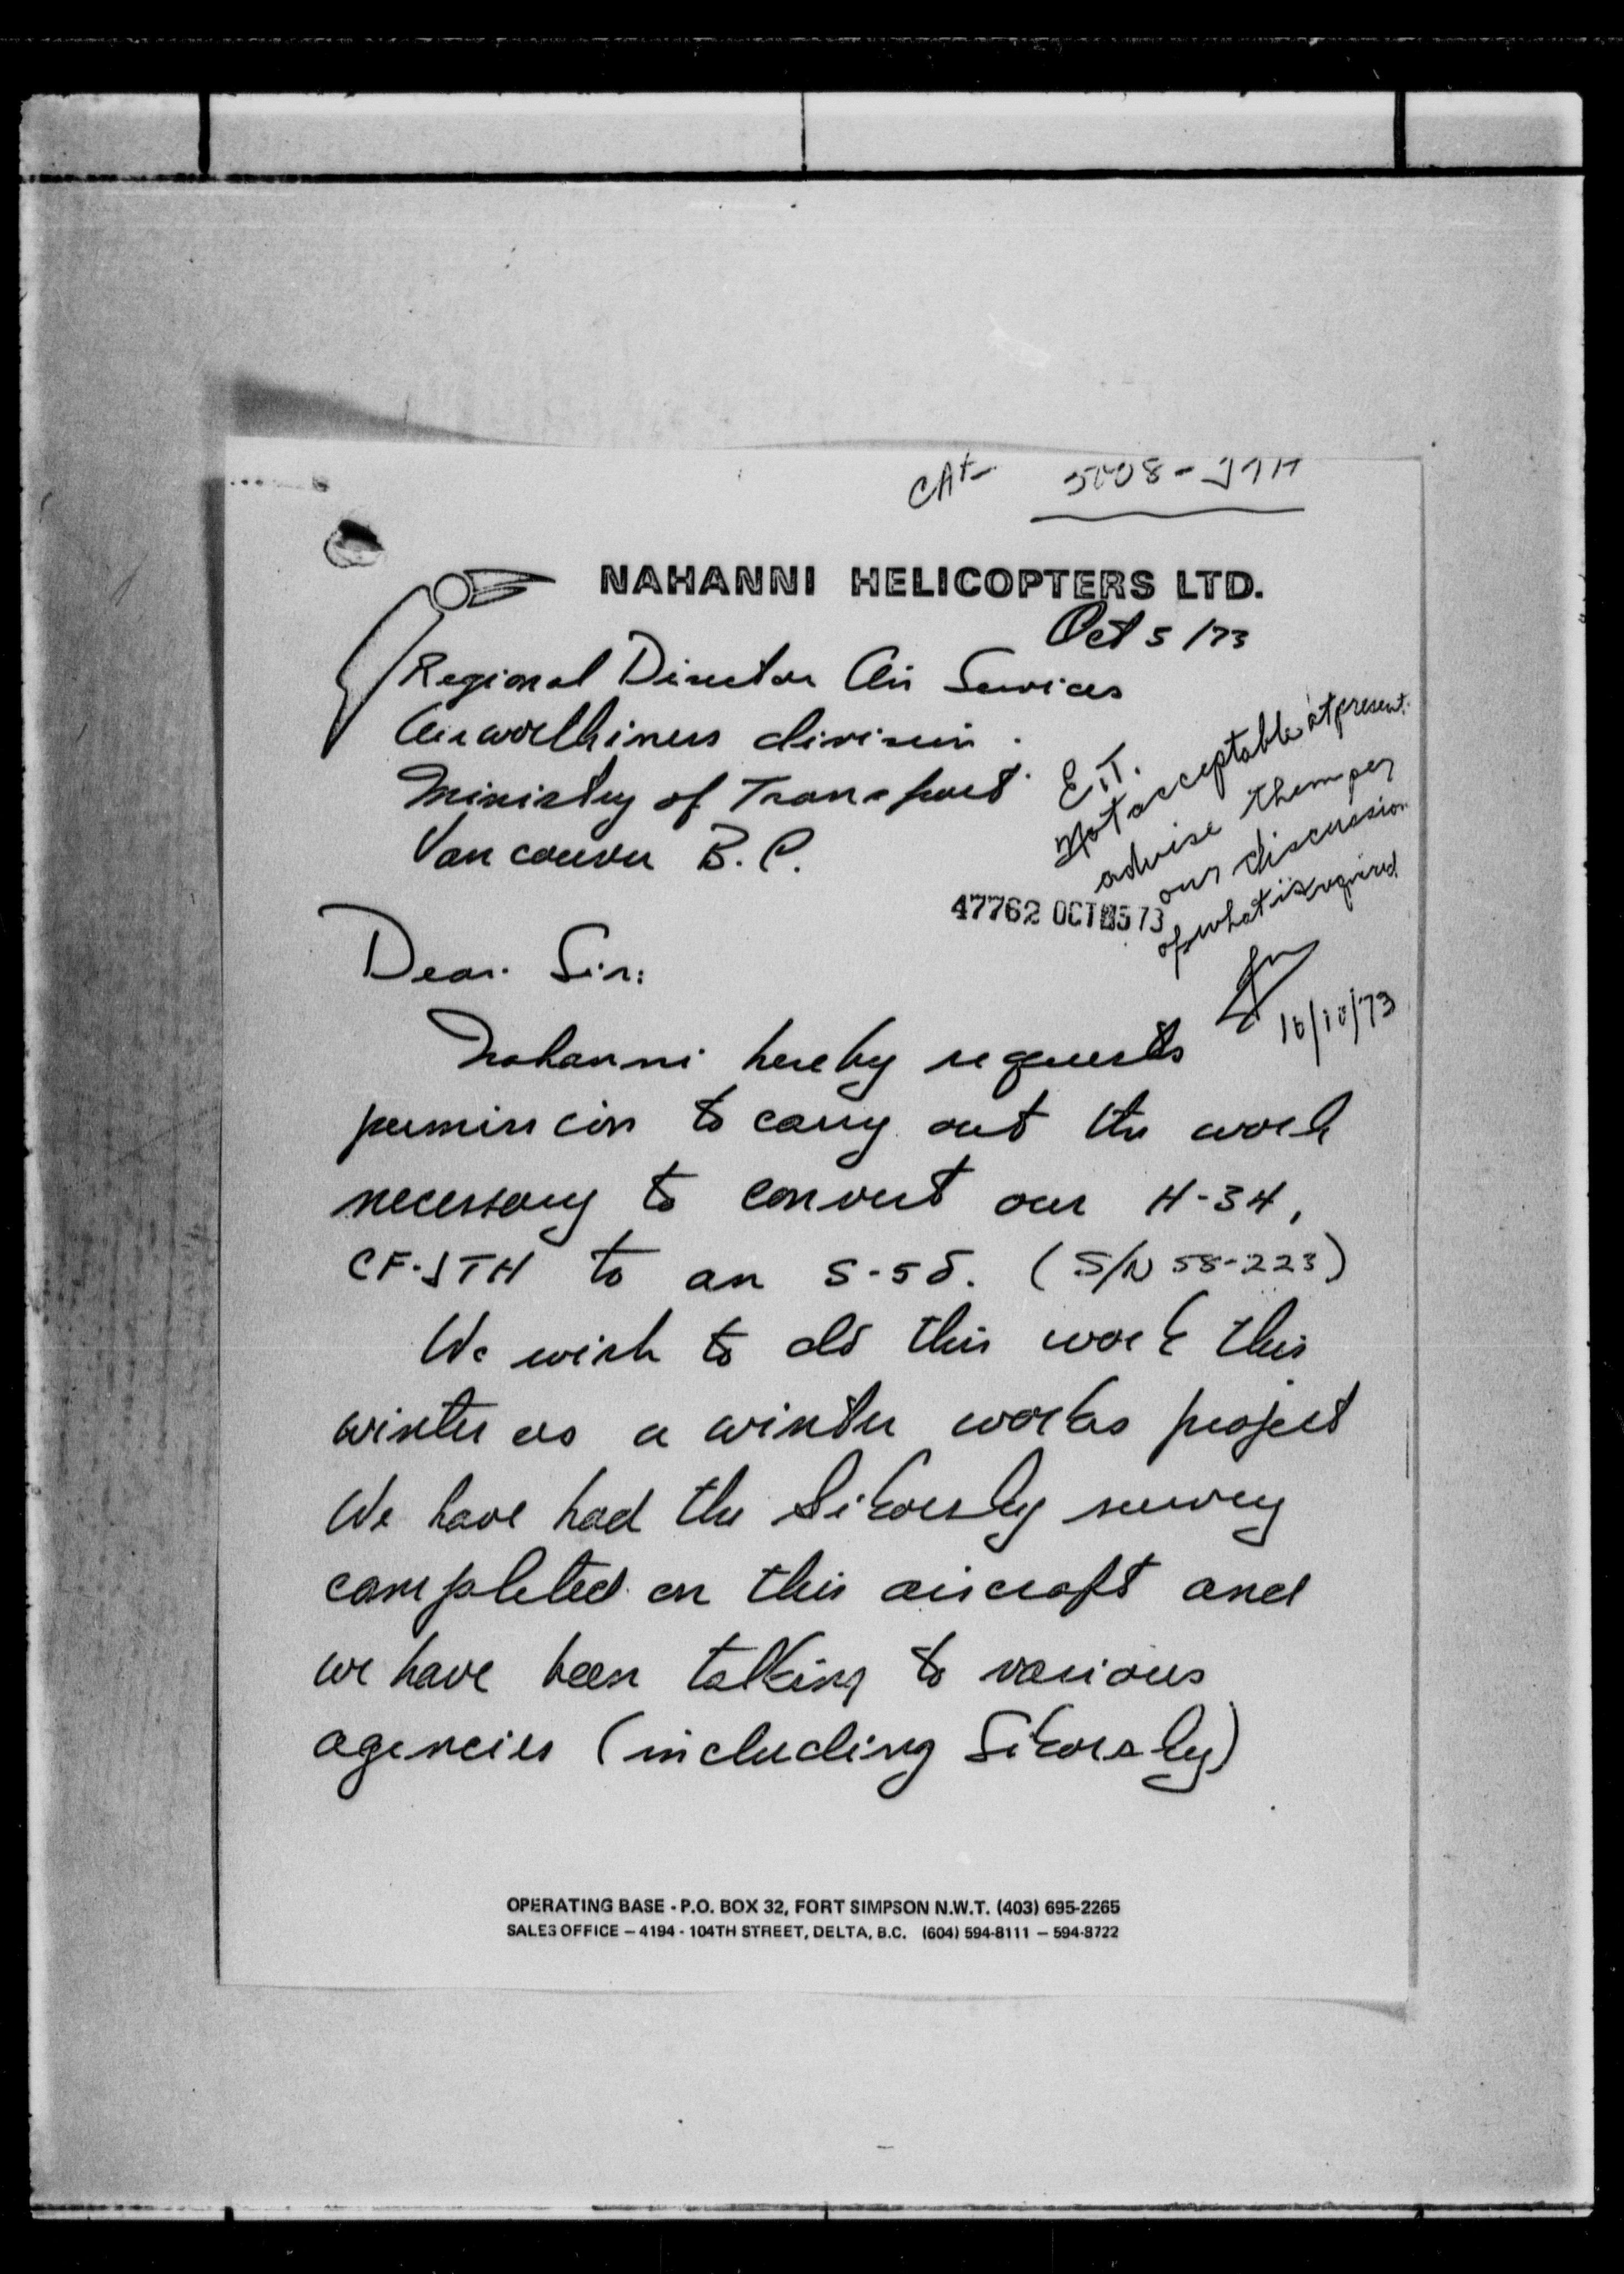 5008-JTH
NAHANNI HELICOPTERS LTD.
Oct 5/73
Regional Director Air Services
Airworthiness division.
Ministry of Transport
Vancouver B.C.
E.T.
Not acceptable at present.
advise them per
our discussion
of what is required
16/10/73
47762 OCT 573
Dear Sir:
Nahanni hereby requests
permission to carry out the work
necessary to convert our H-34,
CF-JTH to an S-58. (S/N 58-223)
We wish to do this work this
winter as a winter works project
We have had the Sikorsky survey
completed on this aircraft and
we have been talking to various
agencies (including Sikorsky)
OPERATING BASE - P.O. BOX 32, FORT SIMPSON N.W.T. (403) 695-2265
SALES OFFICE – 4194 - 104TH STREET, DELTA, B.C. (604) 594-8111 – 594-8722